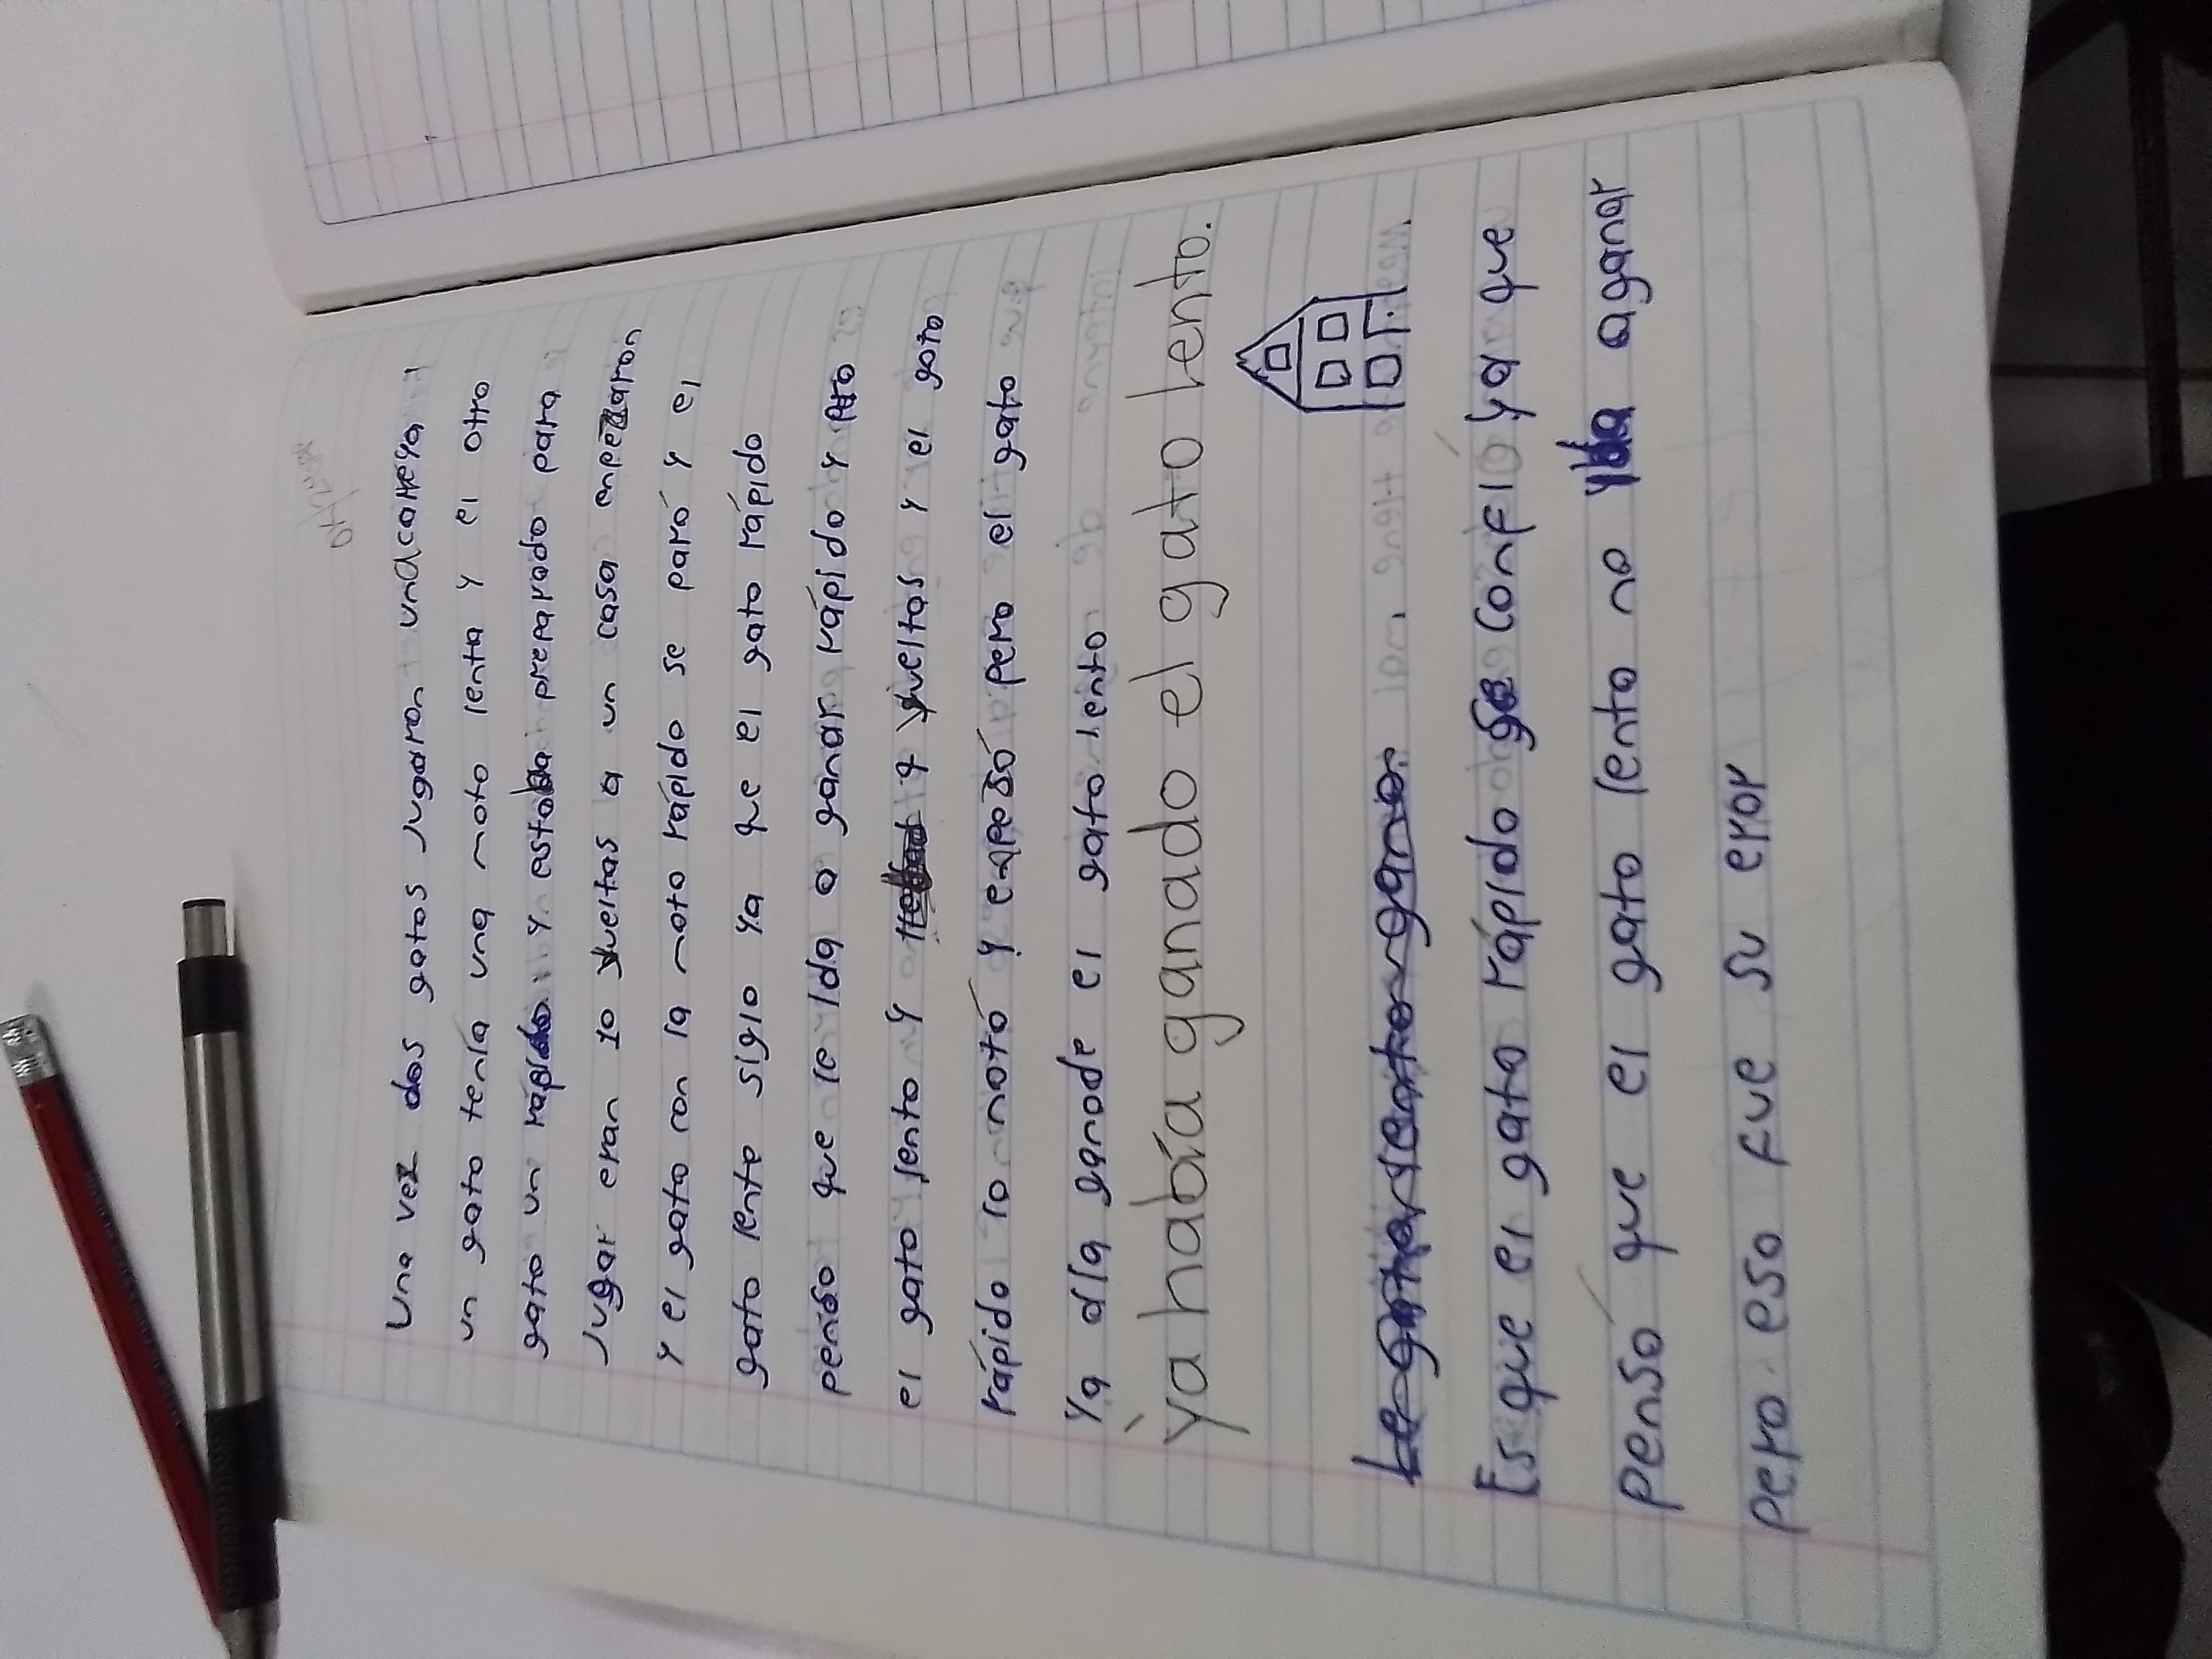 Una vez dos gatos jugaron una carrera
un gato tenía una moto lenta y el otro
gato un rápido y estaba preparado para
jugar eran 10 vueltas a un casa enpezaron
y el gato con la moto rápido se paró y el
gato lento siglo ya que el gato rápido
penso que le yida a ganar rápido y pero
el gato lento y 9 vueltas y el gato
rápido lo notó y enpesó pero el gato
Ya día ganode el gato lento
ya había ganado el gato lento.
Le gato lento gano
Es que el gato rápido se confió ya que
pensó que el gato lento no iba aganar
pero eso fue su error